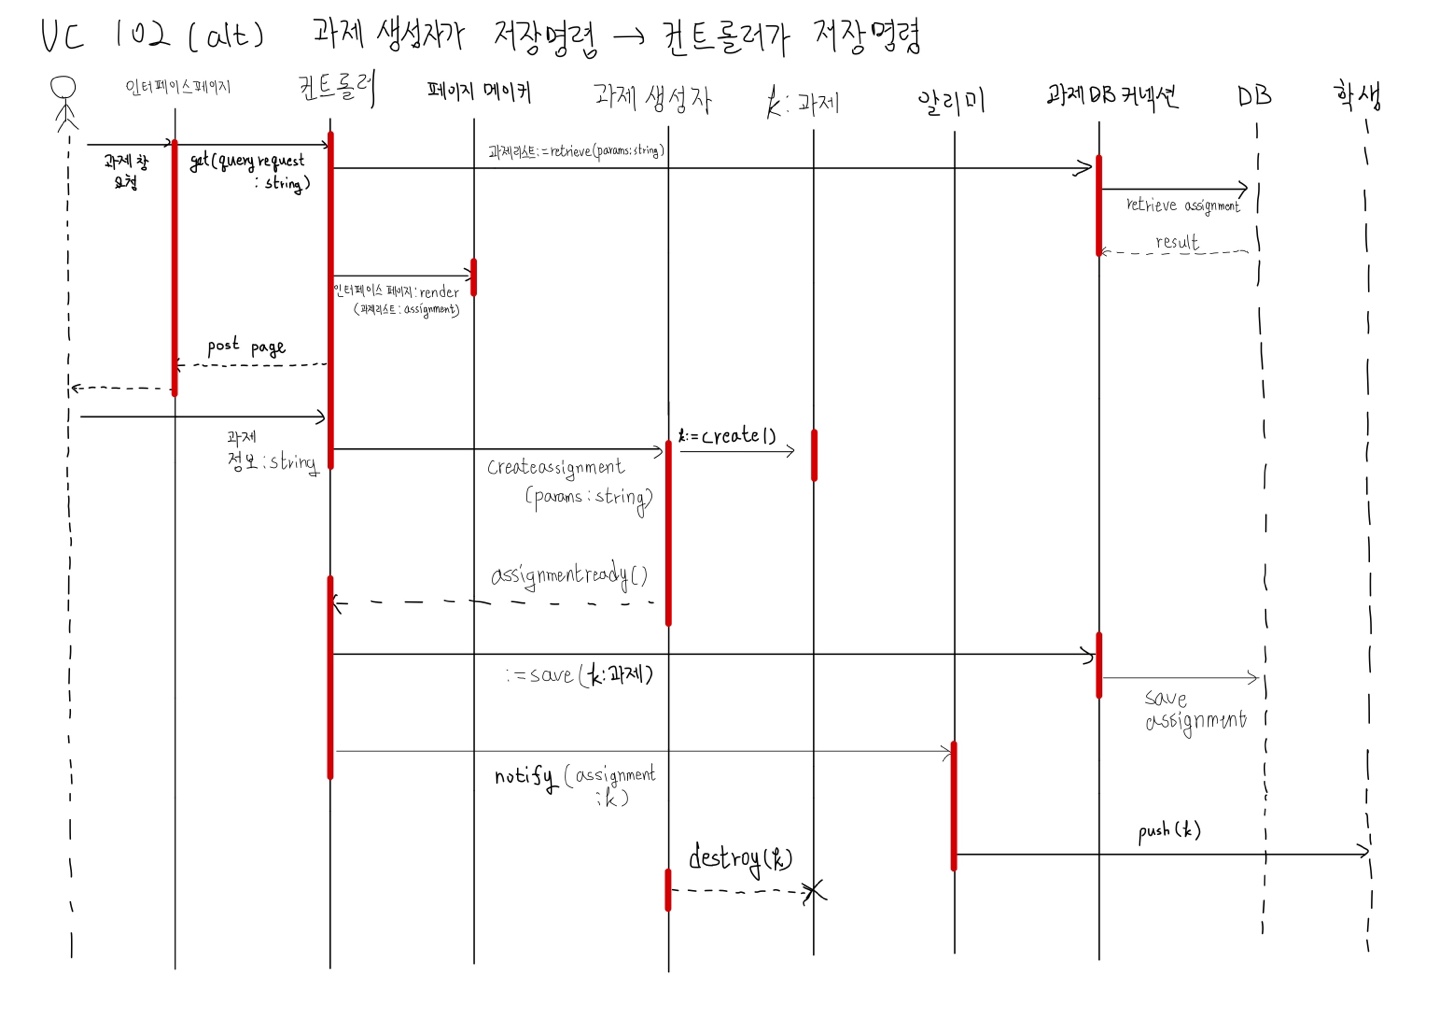 UC 102 (alt) 과제 생성자가 저장명령 → 컨트롤러가 저장명령
인터페이스페이지
컨트롤러
페이지 메이커
과제 생성자
k: 과제
알리미
과제 DB 커넥션
DB
학생
과제 창
요청
get(queryrequest
: string)
과제리스트:=retrieve(params:string)
retrieve assignment
result
인터페이스 페이지:render
(과제리스트: assignment)
post page
과제
정보:string
createassignment
(params:string)
k:=create()
assignmentready()
:=save(k:과제)
save
assignment
notify (assignment
:k)
push(k)
destroy(k)